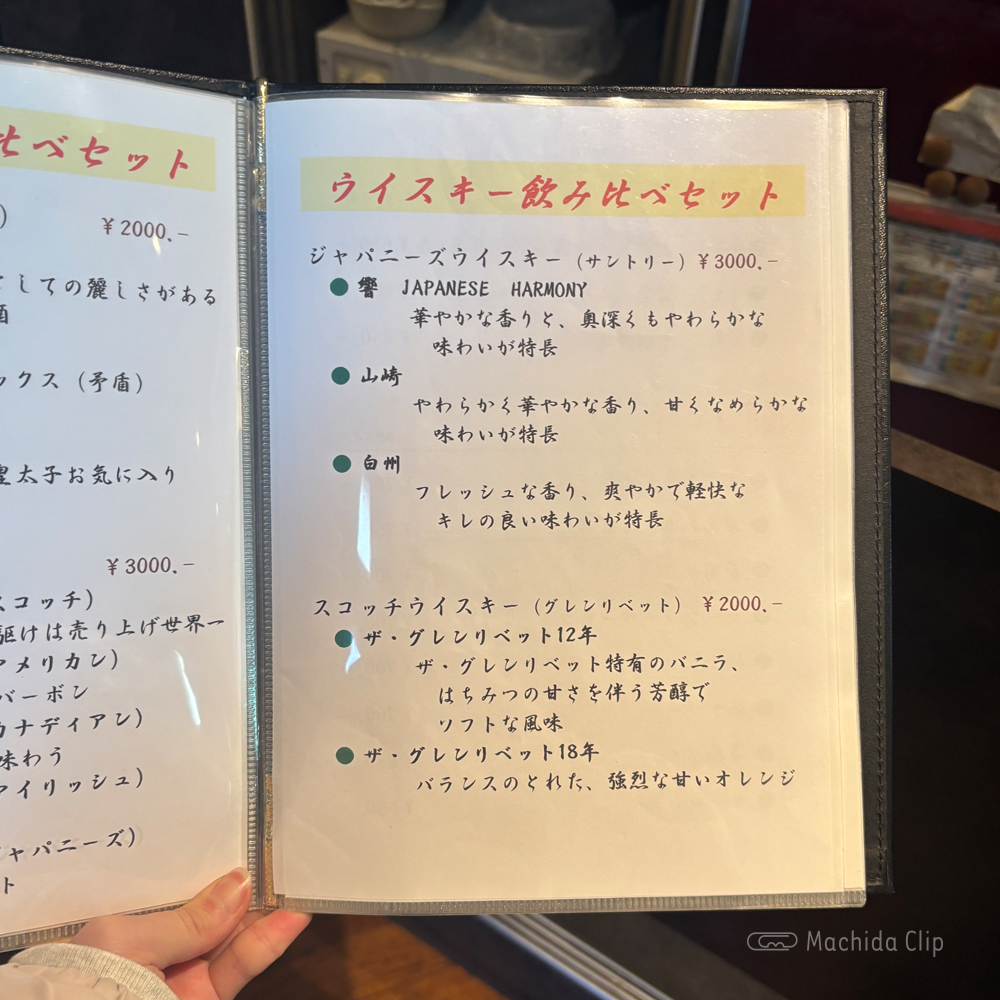 比べセット
)
¥2000.-
しての麗しさがある
酒
ックス (矛盾)
太子お気に入り
¥3000.-
スコッチ)
駆けは売り上げ世界一
アメリカン)
バーボン
カナディアン)
味わう
アイリッシュ)
ャパニーズ)
ト
ウイスキー飲み比べセット
ジャパニーズウイスキー (サントリー) ¥3000.-
● 響 JAPANESE HARMONY
華やかな香りと、奥深くもやわらかな
味わいが特長
● 山崎
やわらかく華やかな香り、甘くなめらかな
味わいが特長
● 白州
フレッシュな香り、爽やかで軽快な
キレの良い味わいが特長
スコッチウイスキー (グレンリベット) ¥2000.-
● ザ・グレンリベット12年
ザ・グレンリベット特有のバニラ、
はちみつの甘さを伴う芳醇で
ソフトな風味
● ザ・グレンリベット18年
バランスのとれた、強烈な甘いオレンジ
Machida Clip